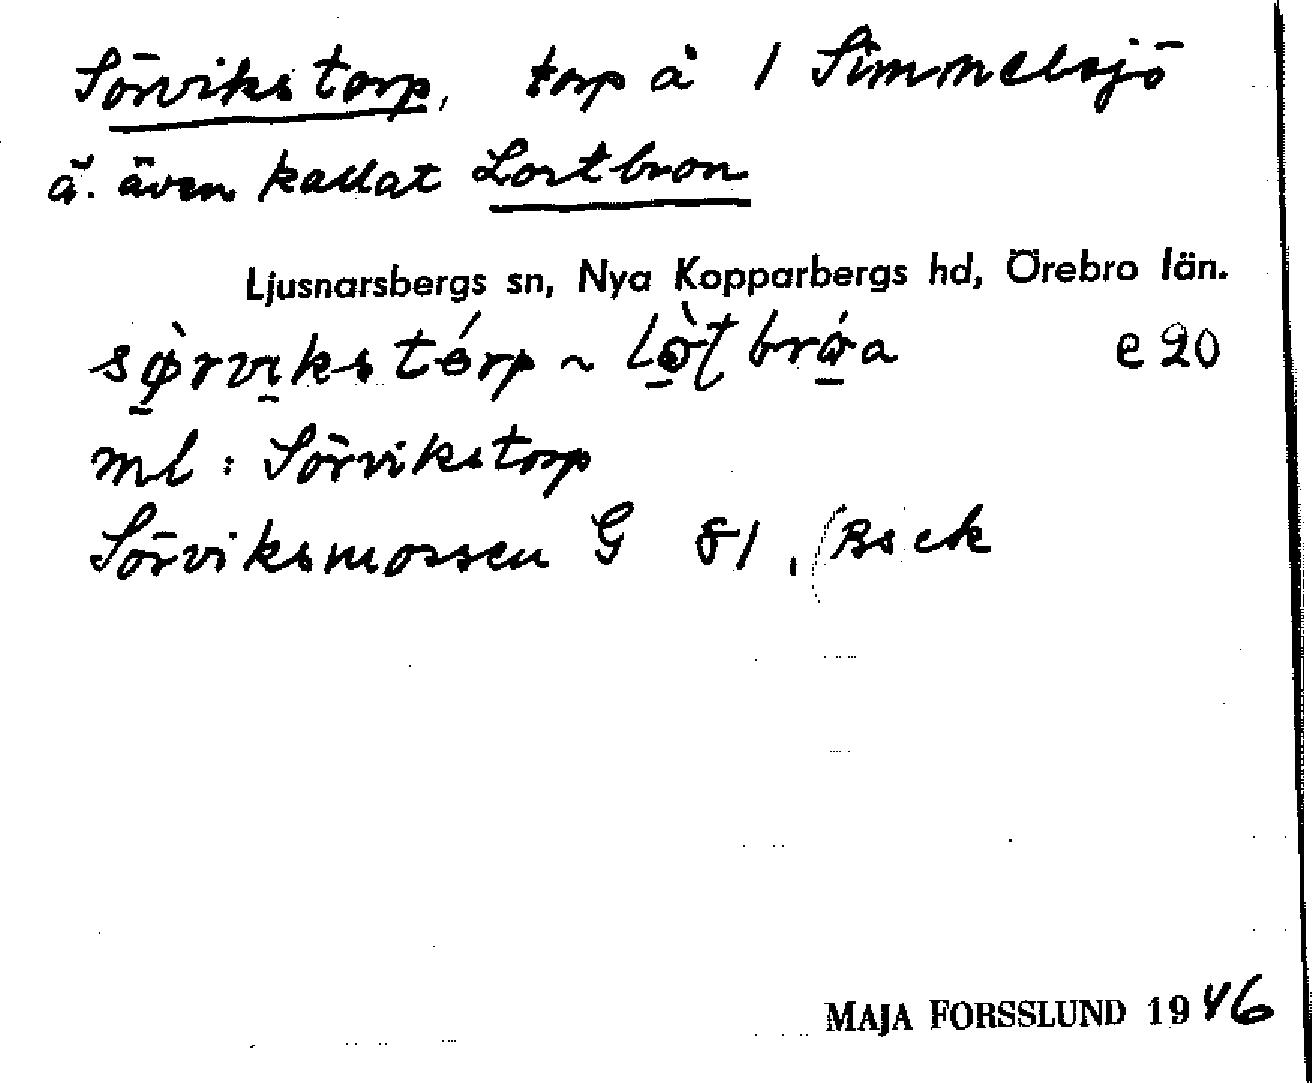 Sörvikstorp, torp å 1 Simmelsjö
ä. även kallat Lortbron
Ljusnarsbergs sn, Nya Kopparbergs hd, Örebro län.
sø̀rvikstórp ~ lòʈbróa e20
ml : Sörvikstorp
Sörviksmossen G 81, Back
MAJA FORSSLUND 1946